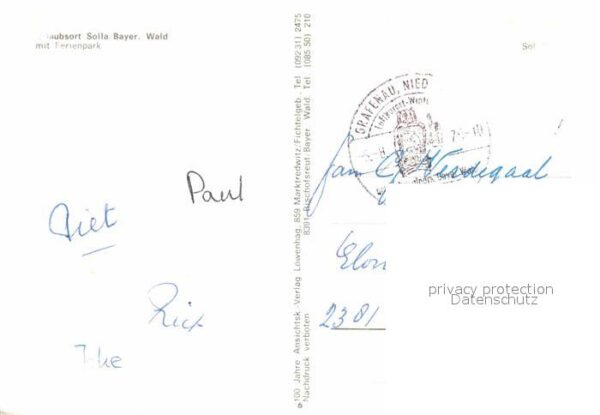 laubsort Solla Bayer. Wald
mit Ferienpark
Paul
Piet
Rick
100 Jahre Ansichtsk.-Verlag Löwenhag, 859 Marktredwitz/Fichtelgeb. Tel (09231) 2475
8391 Bischofsreut/Bayer. Wald. Tel. (085 50) 210
Nachdruck verboten
Sol
GRAFENAU, NIED
Jan C. Verdegaal
Elon
2381
privacy protection
Datenschutz